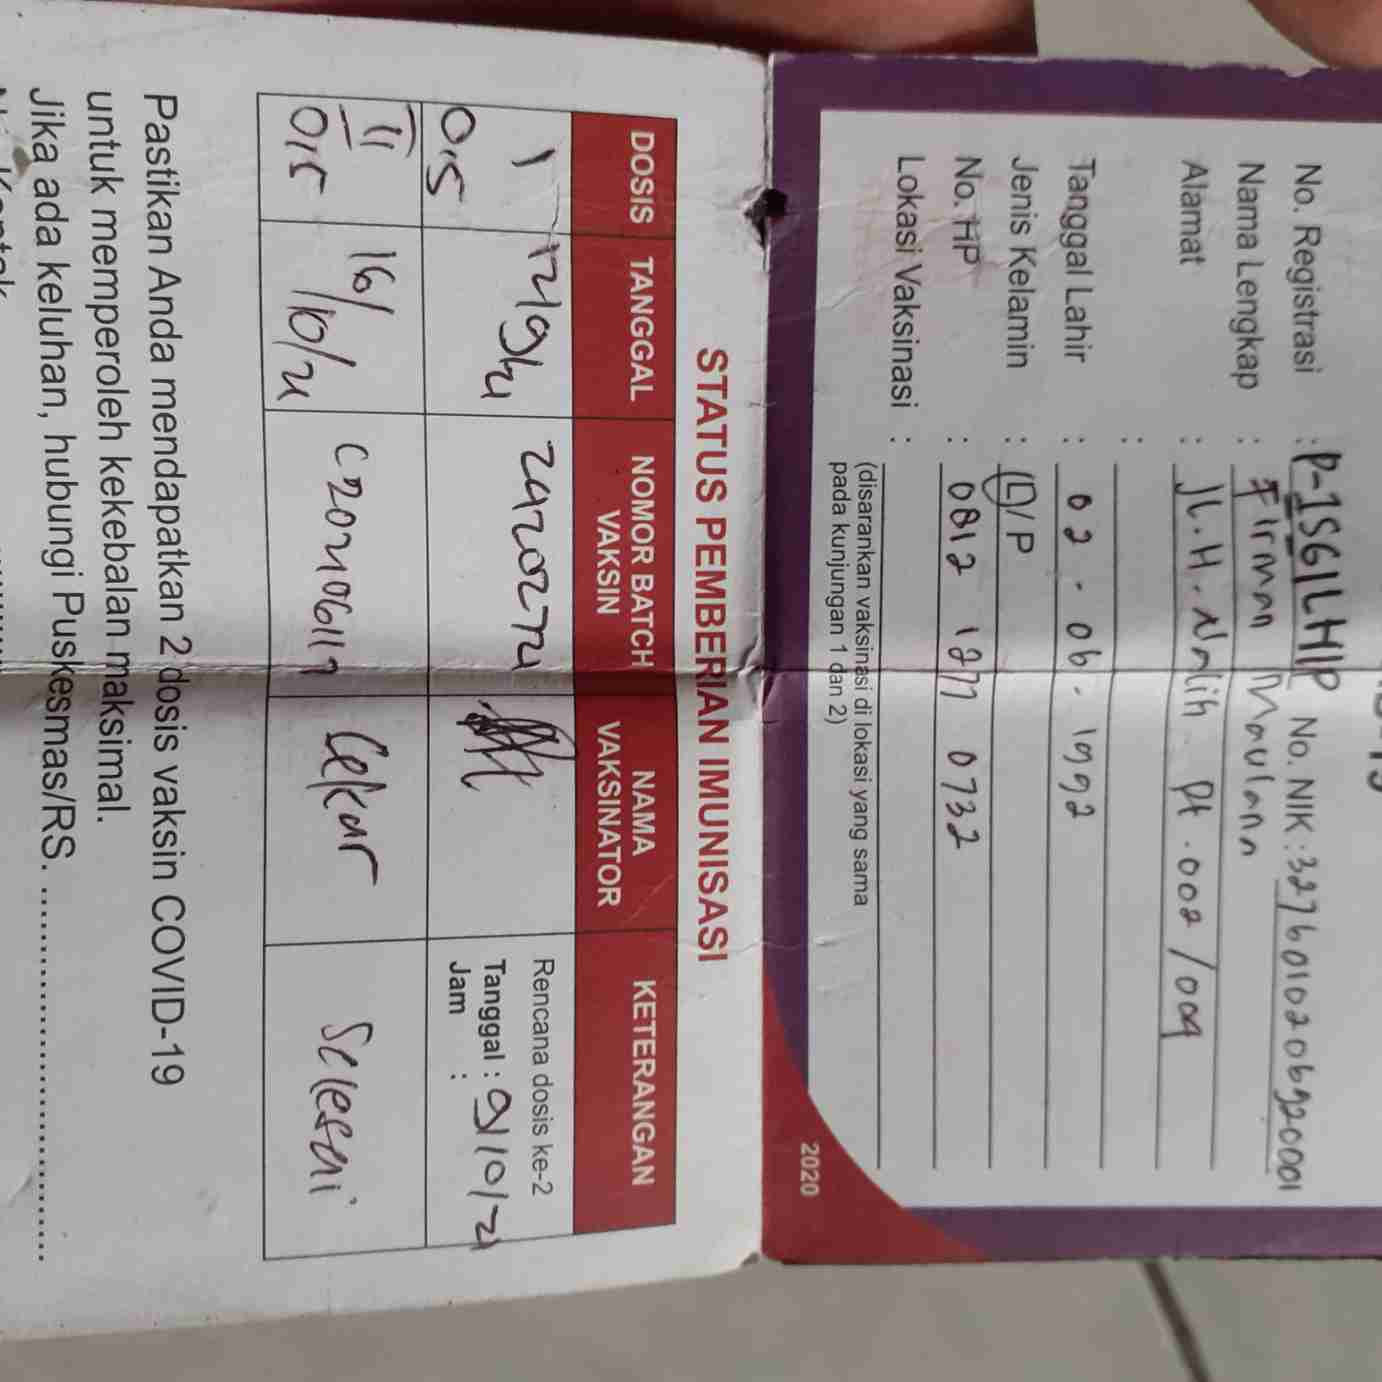 No. Registrasi : P-1S61LHIP No. NIK : 3276010206920001
Nama Lengkap : Firman Maulana
Alamat : JL. H. Nalih Pt. 002 / 009
:
Tanggal Lahir : 02 - 06 - 1992
Jenis Kelamin : L / P
No. HP : 0812 1271 0732
Lokasi Vaksinasi :
(disarankan vaksinasi di lokasi yang sama
pada kunjungan 1 dan 2)
2020
STATUS PEMBERIAN IMUNISASI
DOSIS TANGGAL NOMOR BATCH VAKSIN NAMA VAKSINATOR KETERANGAN
1 0,5 Rencana dosis ke-2
Tanggal : 9/10/21
Jam :
II 0,5 16/10/21 Selesai
Pastikan Anda mendapatkan 2 dosis vaksin COVID-19
untuk memperoleh kekebalan maksimal.
Jika ada keluhan, hubungi Puskesmas/RS. ........................